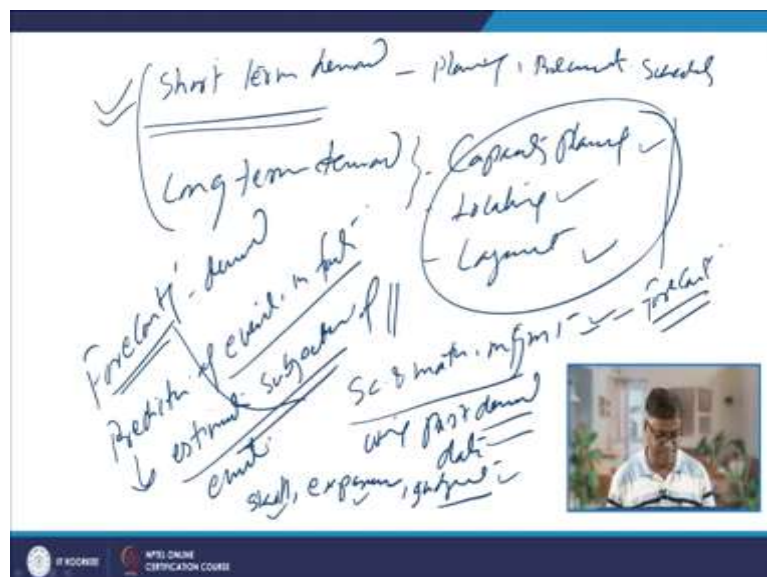 Short term demand - Planning, Schedule
Long term demand } - Capacity planning
- Locating
- Layout
Forecasting - demand
Prediction of events in future
estimate subjective of
events
Sc. & math. mgmt - Forecast
using past demand
data
skill, experience, judgment
IIT ROORKEE
NPTEL ONLINE
CERTIFICATION COURSE